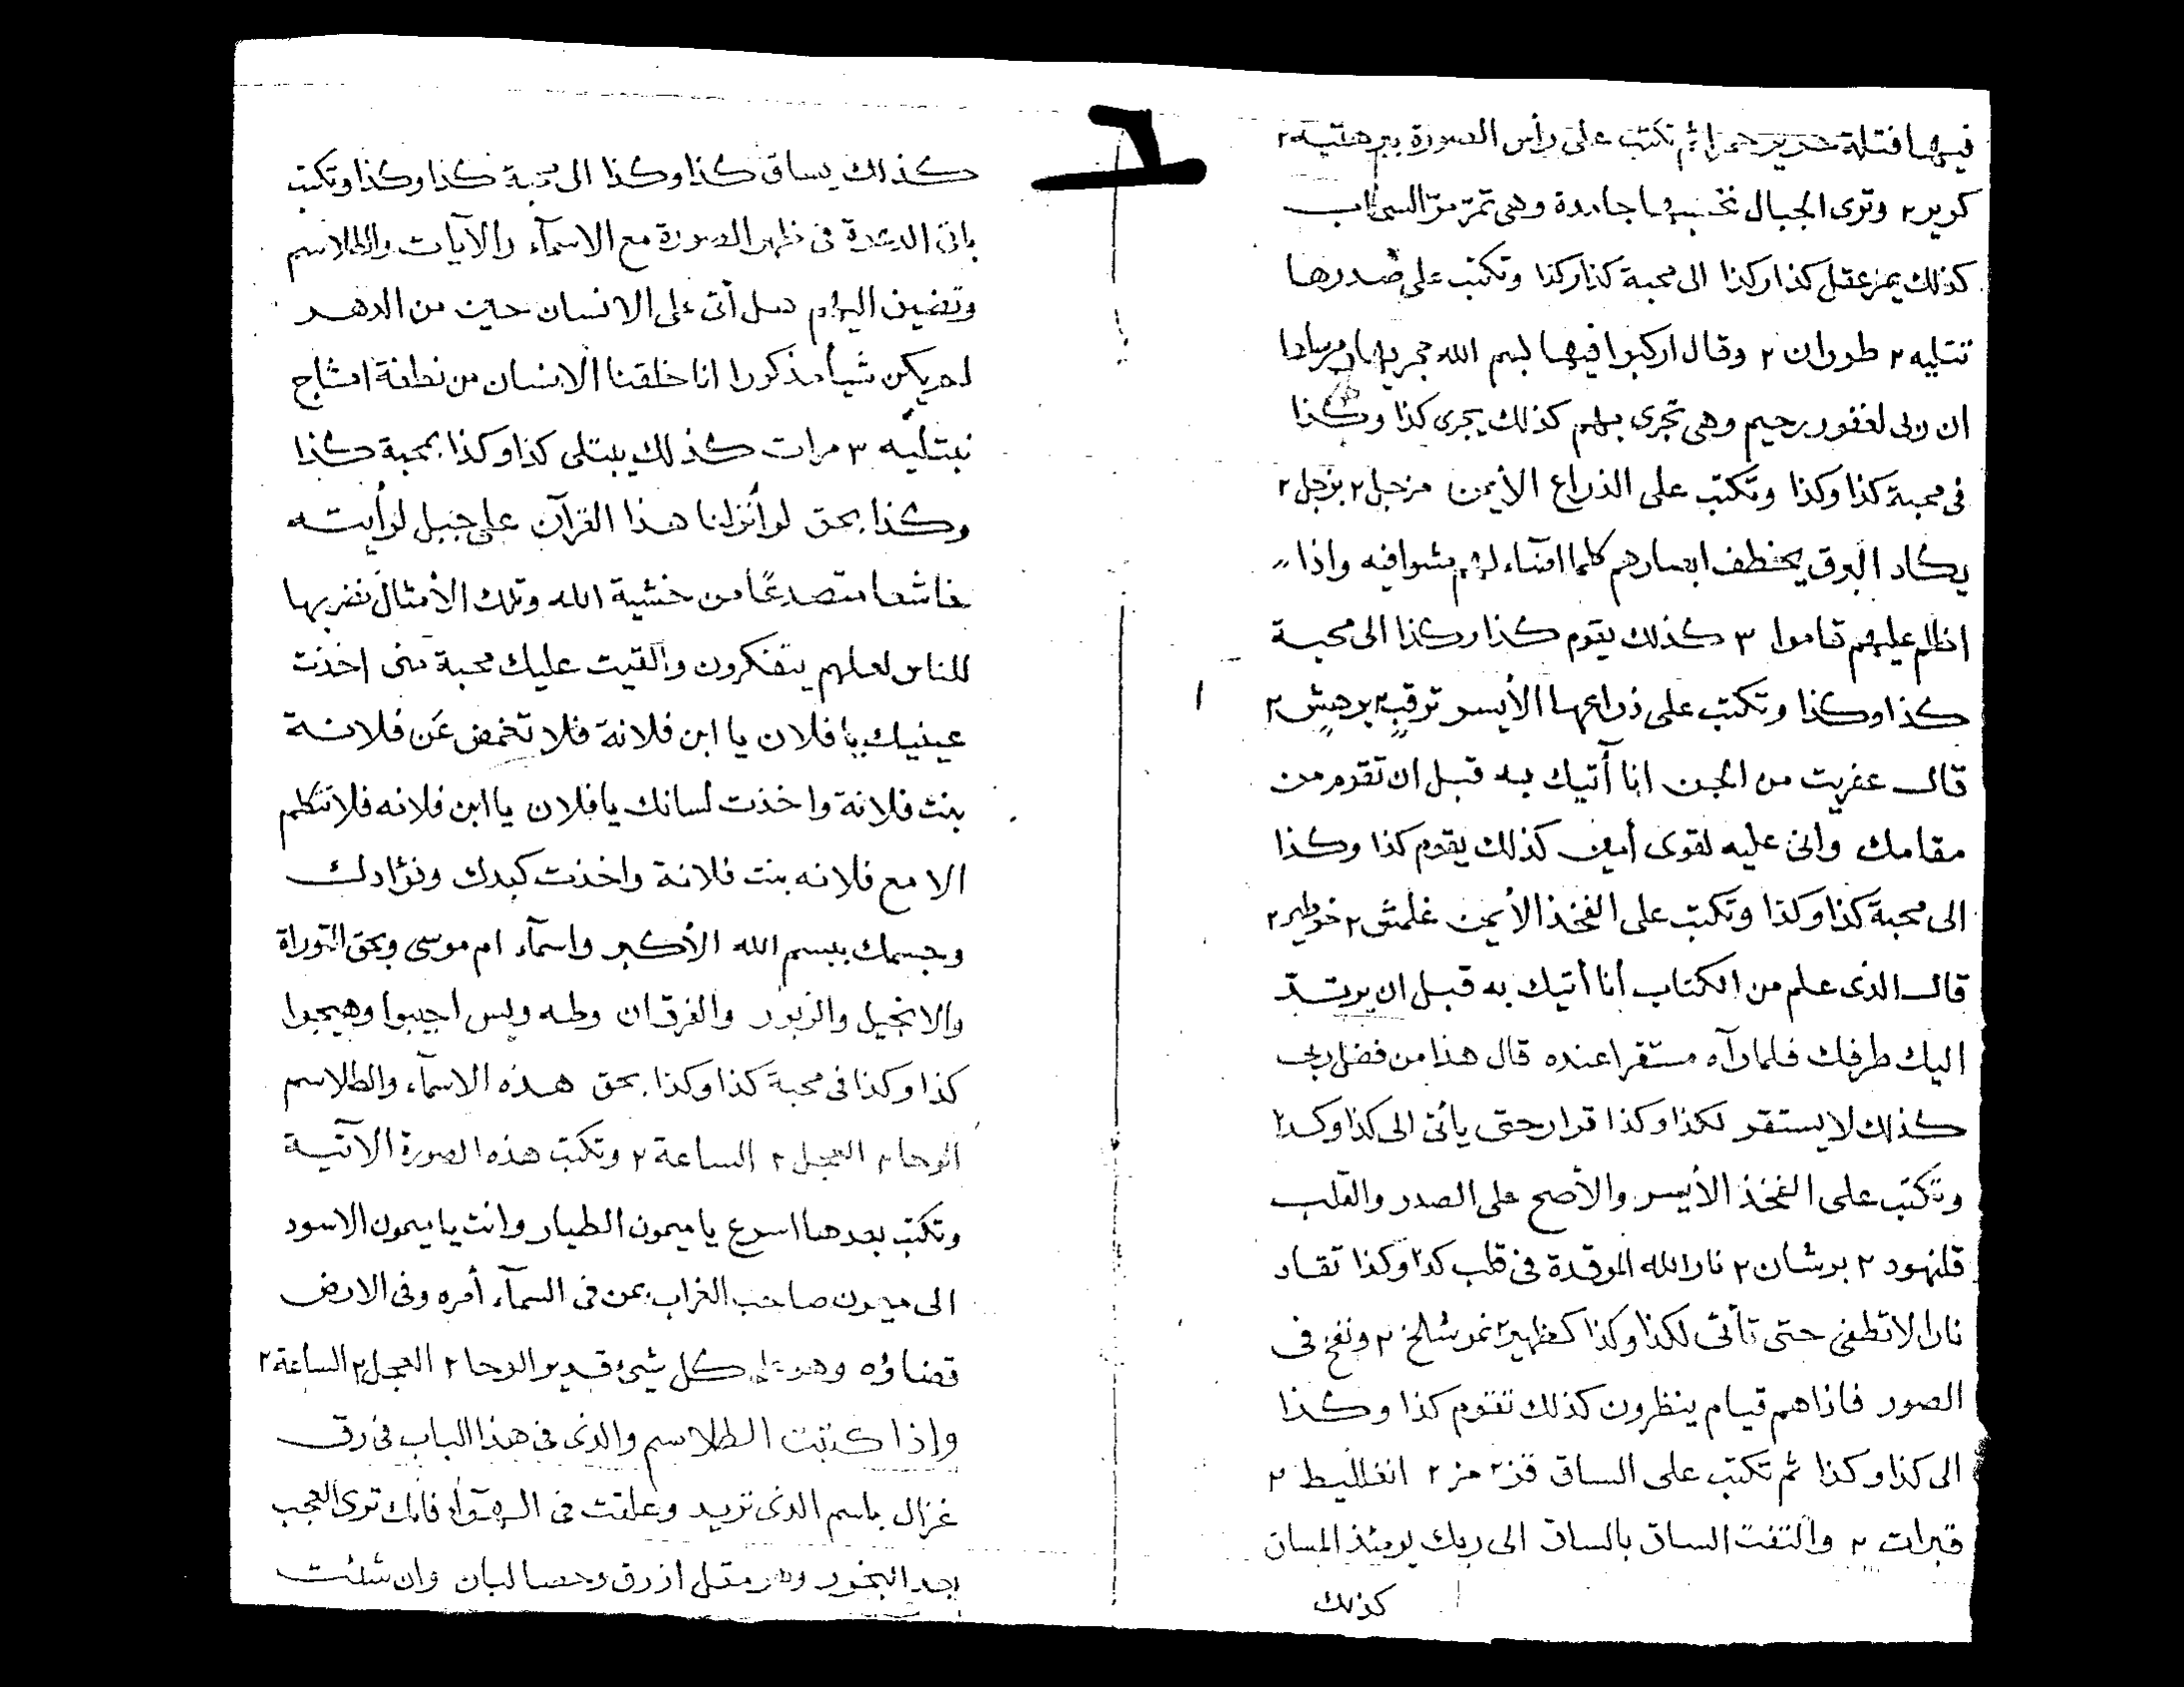 فيها فتلة حرير حمرا ثم تكتب على رأس الصورة ببرهتيه ٢
كرير ٢ وترى الجبال تحسبها جامدة وهى تمر مرّ السحاب
كذلك يمر عقل كذا وكذا الى محبة كذا وكذا وتكتب على صدرها
تتليه ٢ طوران ٢ وقال اركبوا فيها بسم الله مجريها ومرساها
ان ربى لغفور رحيم وهى تجرى بهم كذلك يجرى كذا وكذا
فى محبة كذا وكذا وتكتب على الذراع الأيمن مزجل ٢ بزجل ٢
يكاد البرق يخطف ابصارهم كلما اضآء لهم مشوا فيه واذا
اظلم عليهم قاموا ٣ كذلك يقوم كذا وكذا الى محبة
كذا وكذا وتكتب على ذراعها الأيسر ترقب ٢ برهش ٢
قال عفريت من الجن انا أتيك به قبل ان تقوم من
مقامك وانى عليه لقوى أمين كذلك يقوم كذا وكذا
الى محبة كذا وكذا وتكتب على الفخذ الأيمن غلمش ٢ خوطير ٢
قال الذى علم من الكتاب أنا أتيك به قبل ان يرتد
اليك طرفك فلما رآه مستقرا عنده قال هذا من فضل ربى
كذلك لا يستقر لكذا وكذا قرار حتى يأتى الى كذا وكذا
وتكتب على الفخذ الأيسر والأصح على الصدر والقلب
قلنهود ٢ برشان ٢ نار الله الموقدة فى قلب كذا وكذا تقاد
نارا لا تطفى حتى تأتى لكذا وكذا كظهير ٢ نموشلخ ٢ ونفخ فى
الصور فاذا هم قيام ينظرون كذلك تقوم كذا وكذا
الى كذا وكذا ثم تكتب على الساق قز ٢ مز ٢ انغلليط ٢
قبرات ٢ والتفت الساق بالساق الى ربك يومئذ المساق
كذلك
٦
كذلك يساق كذا وكذا الى محبة كذا وكذا وتكتب
باقى الدعوة فى ظهر الصورة مع الاسمآء والآيات والطلاسم
وتضيف اليهم هل أتى على الانسان حين من الدهر
لم يكن شيأ مذكورا انا خلقنا الانسان من نطفة امشاج
نبتليه ٣ مرات كذلك يبتلى كذا وكذا بمحبة كذا
وكذا بحق لو أنزلنا هذا القرآن على جبل لرأيته
خاشعا متصدعًا من خشية الله وتلك الأمثال نضربها
للناس لعلهم يتفكرون والقيت عليك محبة منى اخذت
عينيك يا فلان يا ابن فلانة فلا تخمض عن فلانة
بنت فلانة واخذت لسانك يا فلان يا ابن فلانه فلا تتكلم
الا مع فلانه بنت فلانة واخذت كبدك وفؤادك
وجسمك ببسم الله الأكبر واسمآء ام موسى وبحق التوراة
والانجيل والزبور والفرقان وطه ويس اجيبوا وهيجوا
كذا وكذا فى محبة كذا وكذا بحق هذه الاسمآء والطلاسم
الوحا ٢ العجل ٢ الساعة ٢ وتكتب هذه الصورة الآتية
وتكتب بعدها اسرع يا ميمون الطيار وانت يا ميمون الاسود
الى ميمون صاحب الغراب بمن فى السمآء أمره وفى الارض
قضاؤه وهو على كل شيئ قدير الوحا ٢ العجل ٢ الساعة ٢
وإذا كتبت الطلاسم والذى فى هذا الباب فى رق
غزال باسم الذى تريد وعلقت فى الهوآء فانك ترى العجب
بعد البخور وهو مقل ازرق وحصا لبان وان شئت